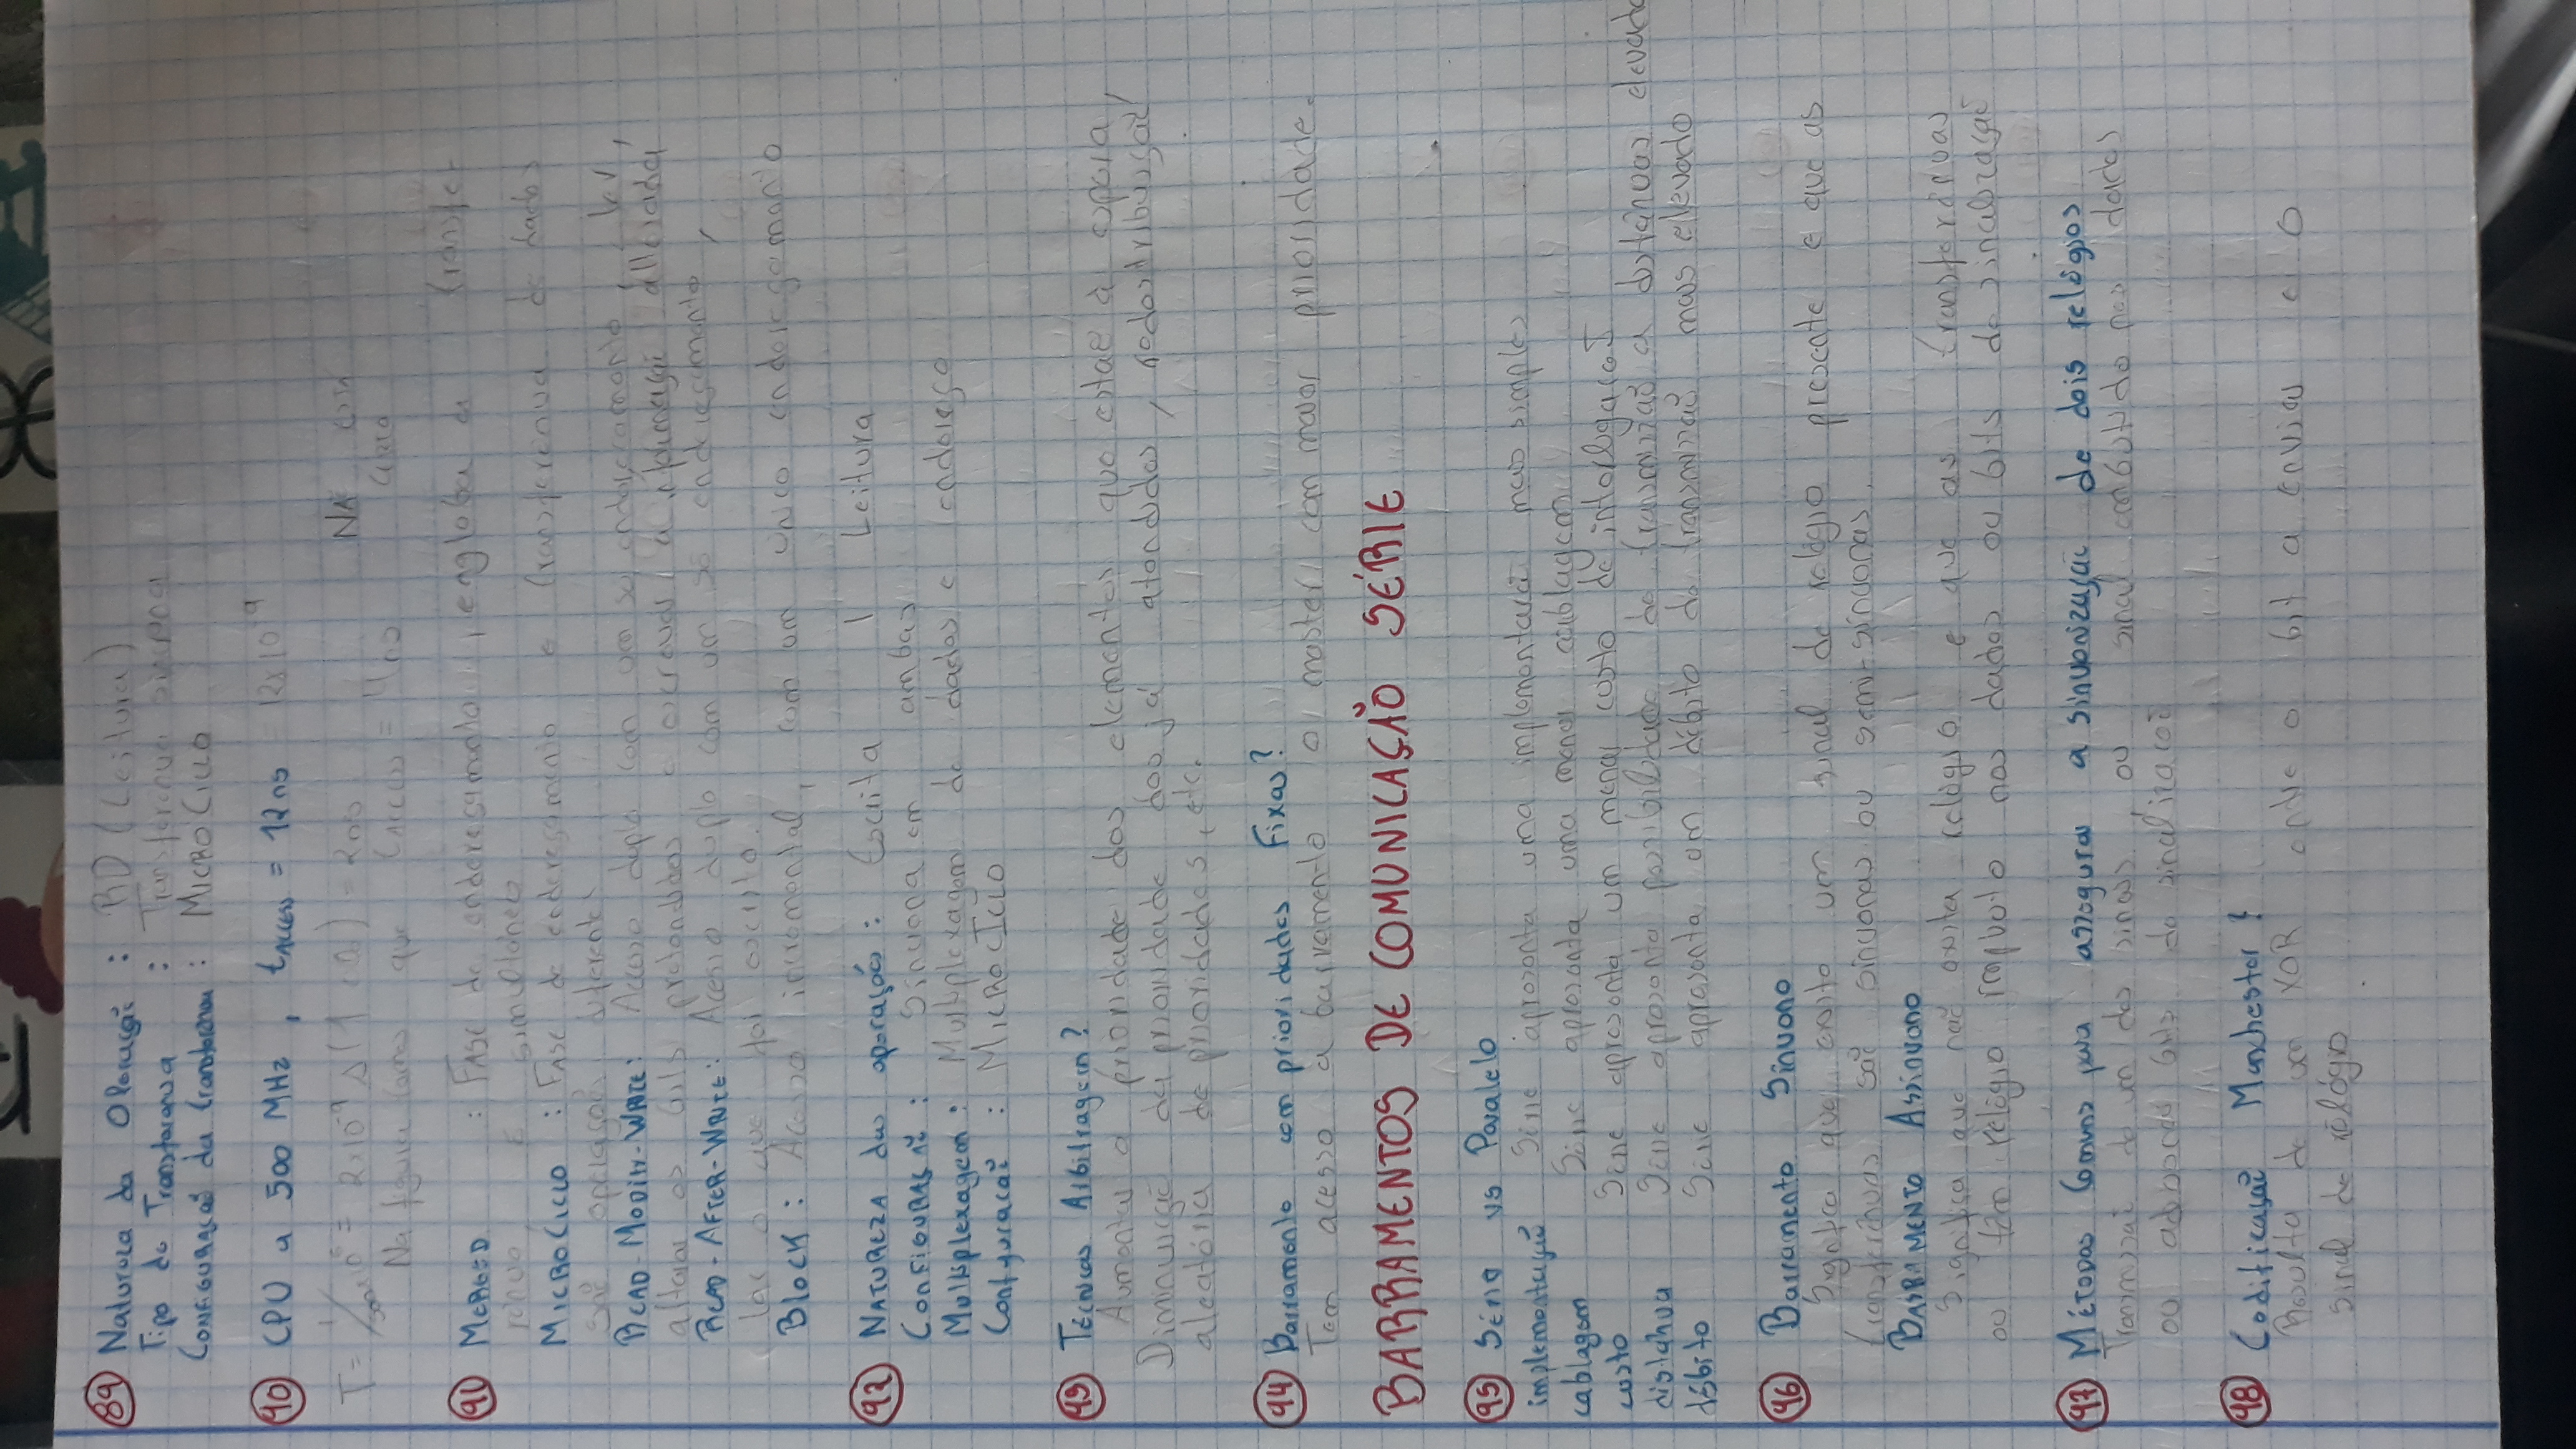 89 Natureza da Operação : RD (Leitura)
Tipo de Transferência : Transferência síncrona
CONFIGURAÇÃO da transferência : MICROCICLO
90 CPU a 500 MHz, tACCESS = 12ns 12x10^-9
T= 1/500x10^6 = 2x10^-9 s (1 ) = 2ns
Na figura temos que tACCESS = 4ns
91 MERGED : FASE de endereçamento, engloba a transfe-
rência, é simultâneo
MICROCICLO : FASE de endereçamento e transferência de dados
são operações diferentes
READ-MODIFY-WRITE: Acesso duplo com um só endereçamento, ler,
alterar os bits pretendidos e escrever a informação alterada
READ-AFTER-WRITE: Acesso duplo com um só endereçamento,
ler o que foi escrito.
BLOCK : Acesso incremental, com um único endereçamento
92 NATUREZA das operações : Escrita | Leitura
CONFIGURAÇÃO : Síncrona em ambas
Multiplexagem : Multiplexagem de dados e endereço
Configuração : MICROCICLO
93 Técnicas Arbitragem?
Aumentar a prioridade dos elementos que estão à espera,
Diminuição da prioridade dos já atendidos, redistribuição
aleatória de prioridades, etc.
94 Barramento com prioridades Fixas?
Tem acesso a barramento o master com maior prioridade.
BARRAMENTOS DE COMUNICAÇÃO SÉRIE
95 Série vs Paralelo
implementação Série apresenta uma implementação mais simples
cablagem Série apresenta uma menor cablagem
custo Série apresenta um menor custo de interligação
distância Série apresenta possibilidade de transmissão a distâncias elevada
débito Série apresenta um débito de transmissão mais elevado
96 Barramento Síncrono
Significa que existe um sinal de relógio presente e que as
transferências são síncronas ou semi-síncronas.
BARRAMENTO Assíncrono
Significa que não existe relógio e que as transferências
ou têm relógio implícito nos dados ou bits de sinalização
97 Métodos Comuns para assegurar a sincronização de dois relógios
Transmissão de um dos sinais, ou sinal embutido nos dados
ou bits de sinalização
98 Codificação Manchester?
Resulta de um XOR entre o bit a enviar e o
sinal de relógio